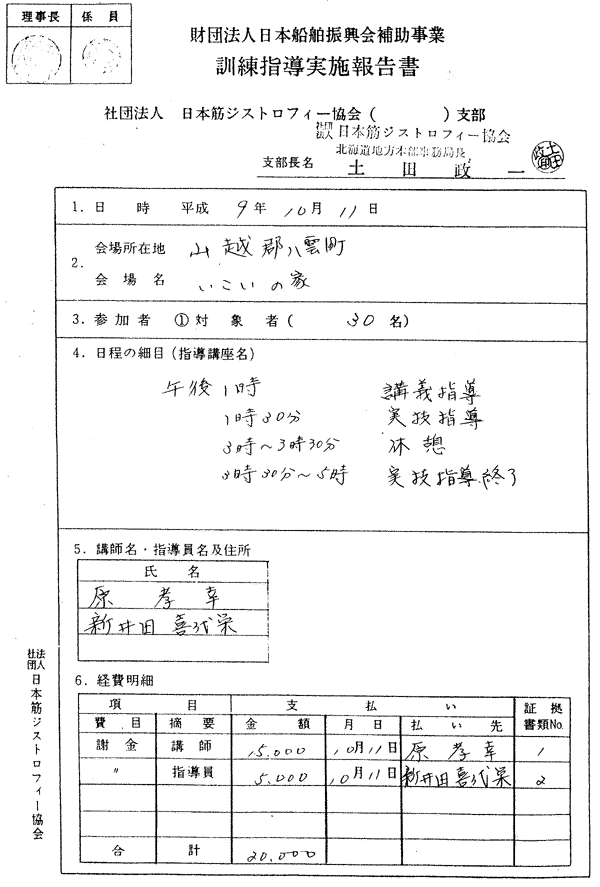 理事長 係員
財団法人日本船舶振興会補助事業
訓練指導実施報告書
社団法人 日本筋ジストロフィー協会( )支部
社団法人 日本筋ジストロフィー協会
北海道地方本部事務局長
支部長名 土田政一
1.日時 平成 9年 10月 11日
2.会場所在地 山越郡八雲町
会場名 いこいの家
3.参加者 ①対象者( 30名)
4.日程の細目(指導講座名)
午後1時 講義指導
1時30分 実技指導
3時~3時30分 休憩
3時30分~5時 実技指導.終了
5.講師名・指導員名及住所
氏名
原 孝幸
新井田喜代栄
6.経費明細
項目 支払い 証拠書類No.
費目 摘要 金額 月日 払い先
謝金 講師 15.000 10月11日 原 孝幸 1
〃 指導員 5.000 10月11日 新井田喜代栄 2
合計 20.000
社団法人 日本筋ジストロフィー協会